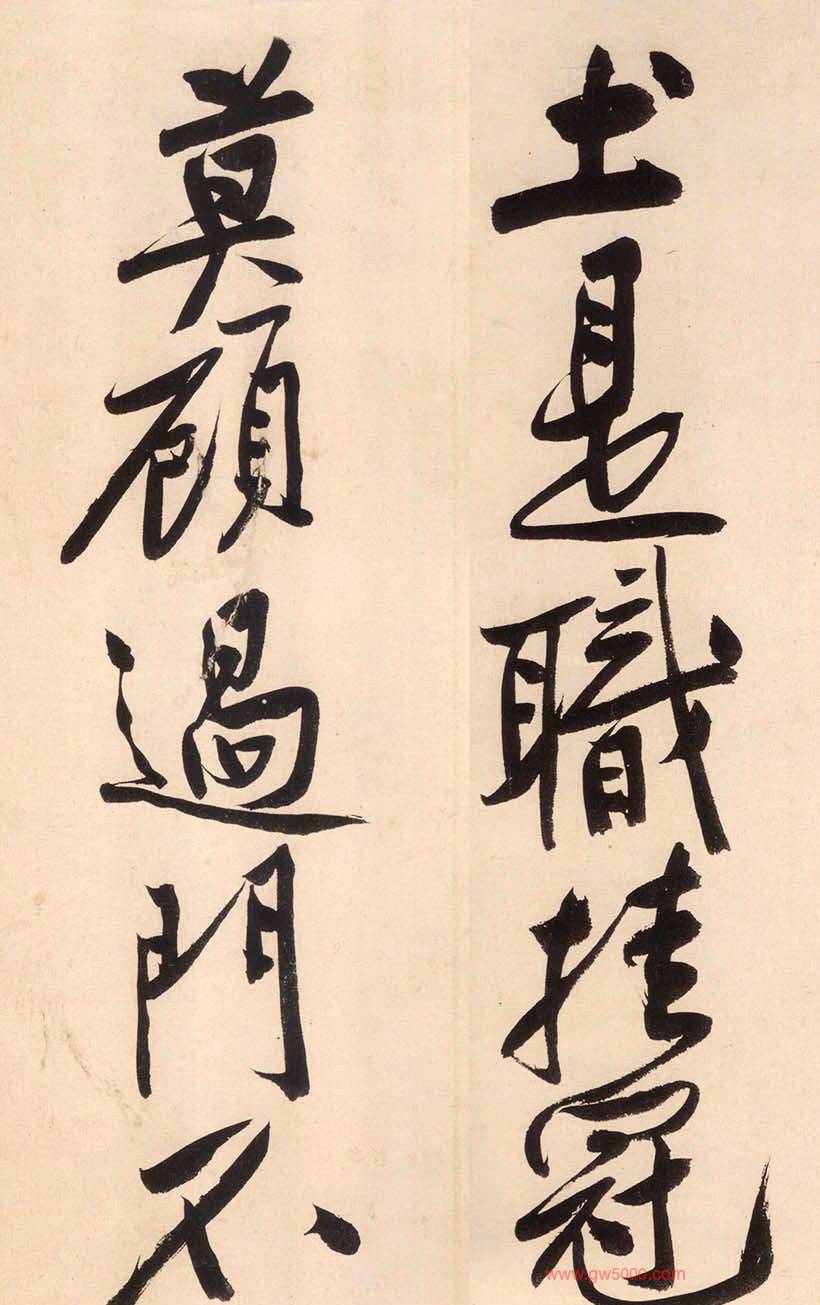 土是職挂冠
莫顧過門不
www.gw5000.com